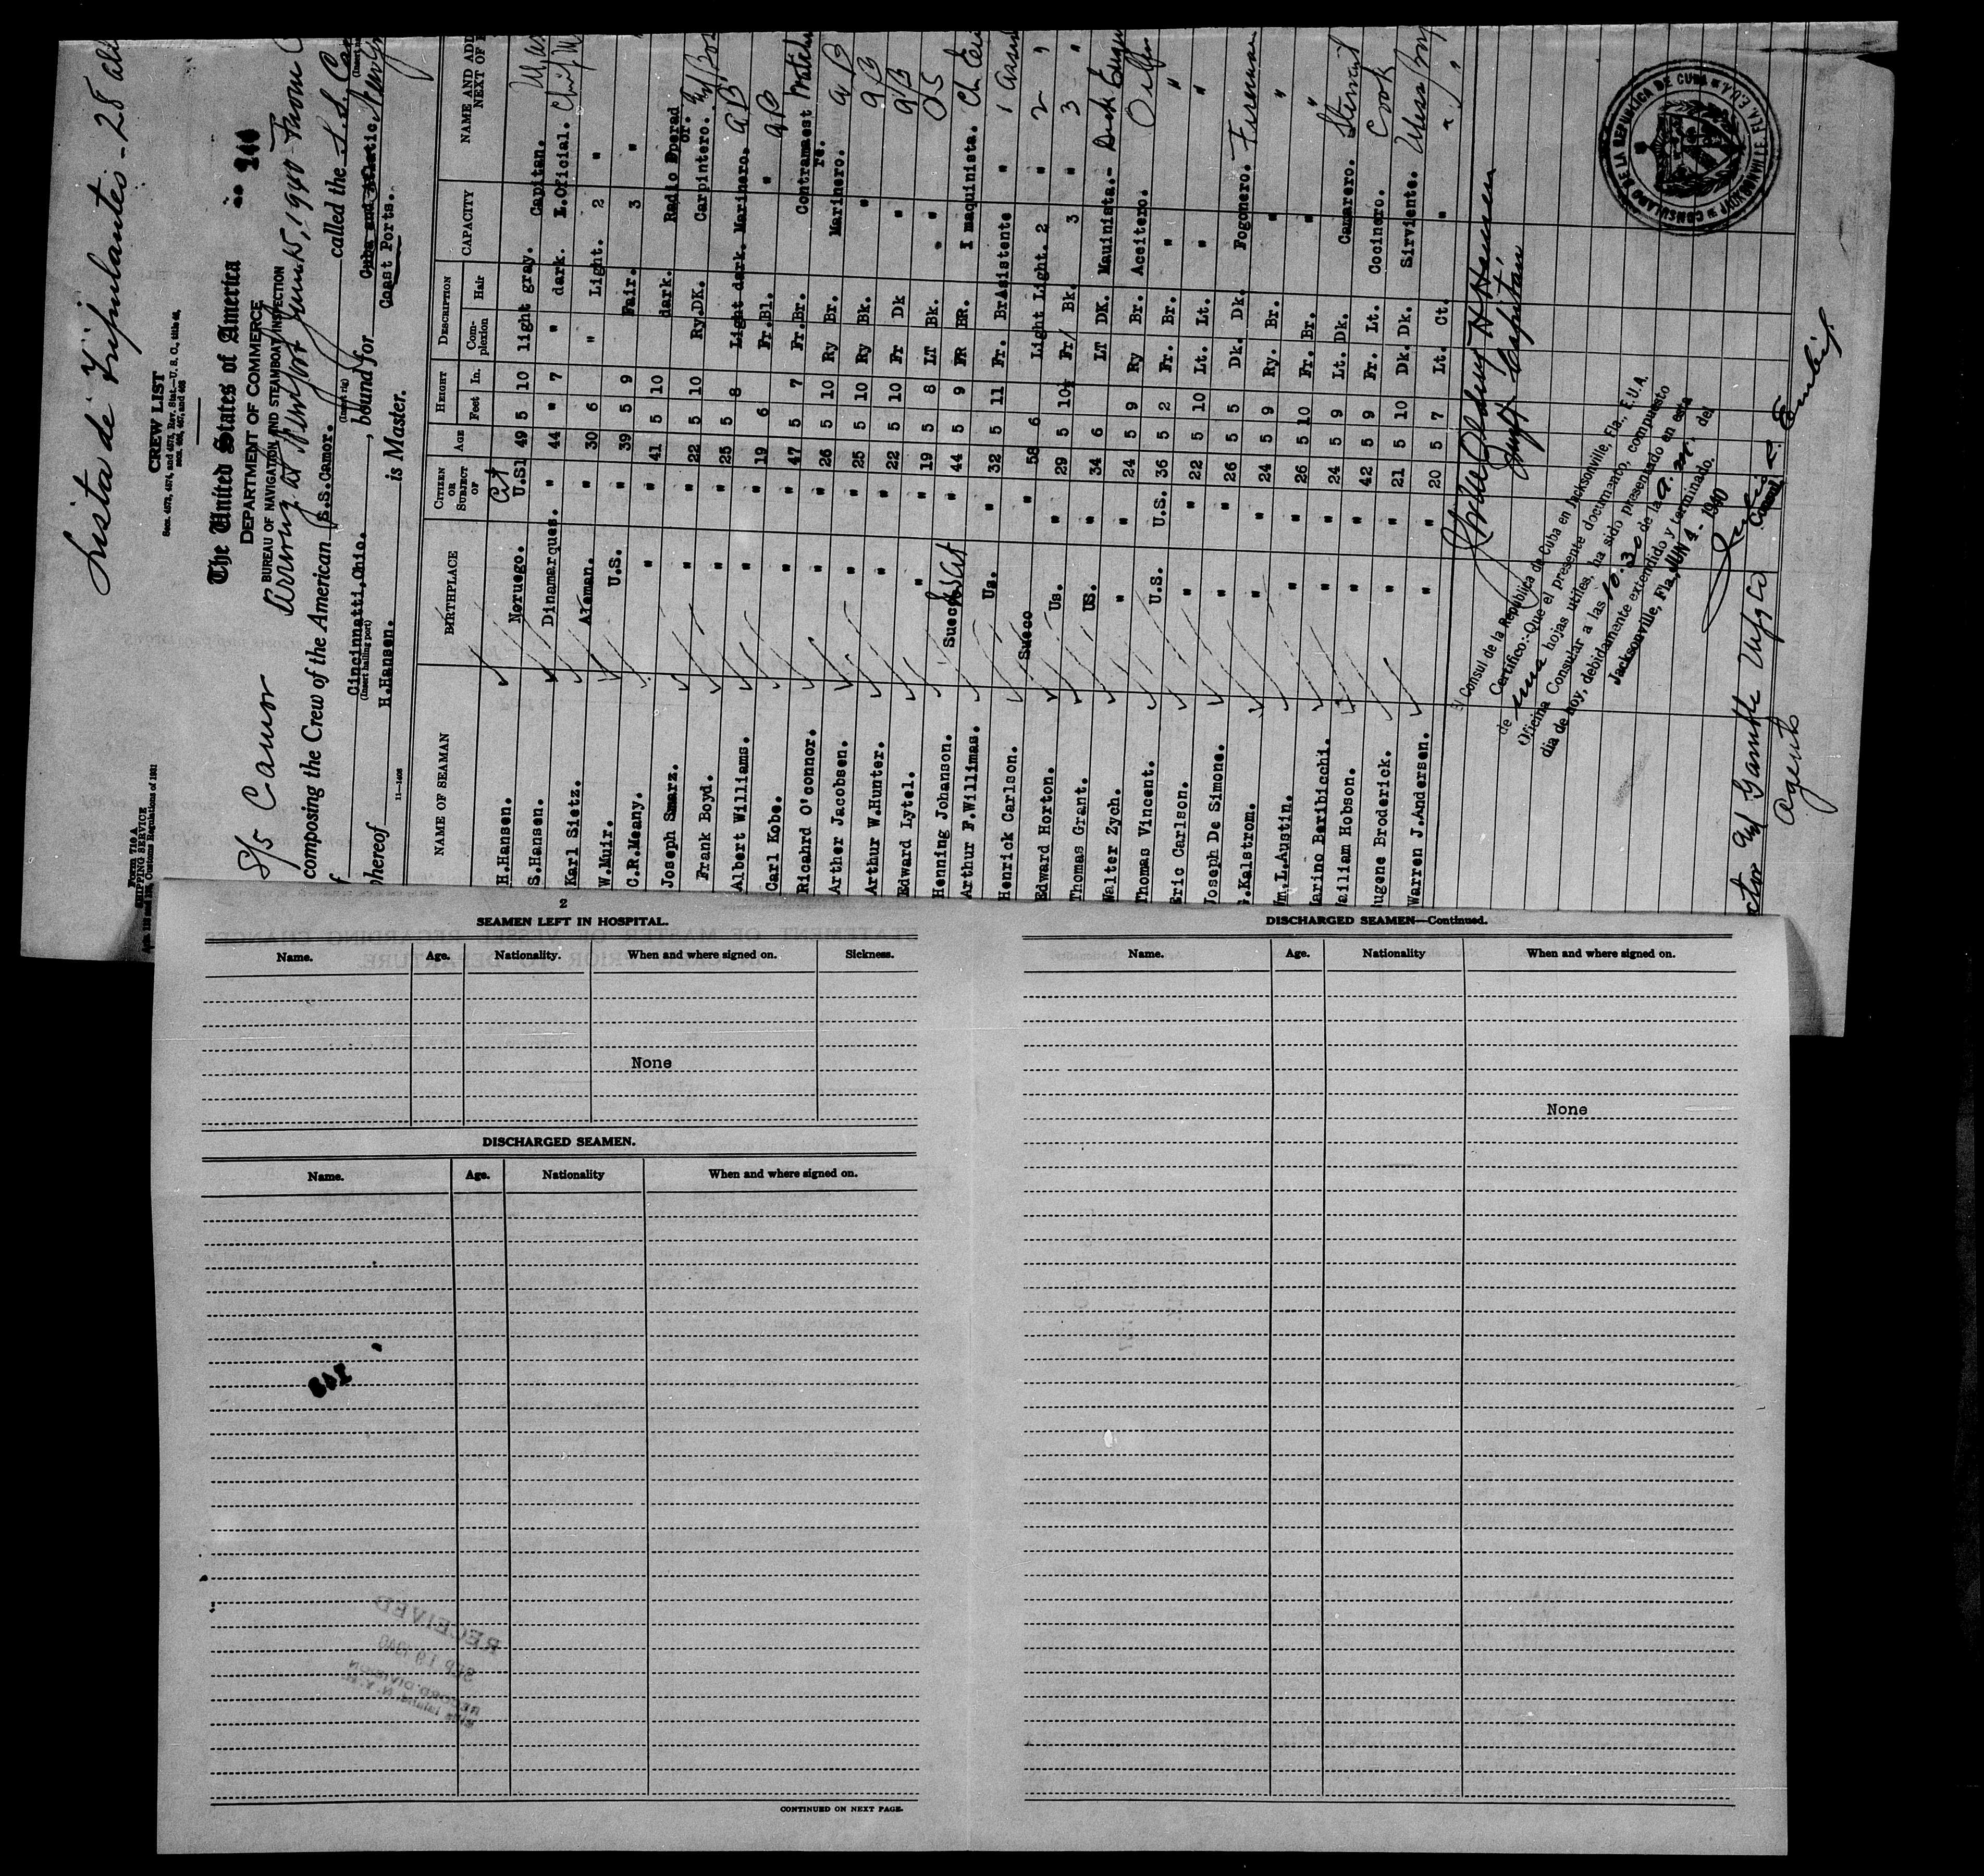 Lista de Tripulantes - 28 all
Form 710 A
SHIPPING SERVICE
CREW LIST
Secs. 4573, 4574, and 4575, Rev. Stat.—U. S. C., title 46,
secs. 465, 467, and 468
The United States of America
DEPARTMENT OF COMMERCE
BUREAU OF NAVIGATION AND STEAMBOAT INSPECTION
S/S Camor
Arriving at New York June 15, 1940 From
composing the Crew of the American S.S.Camor. called the S.S.
(Insert rig)
Cincinnatti,Ohio. , bound for Cuba and Atlantic
(Insert hailing port)
Coast Ports.
hereof H.Hansen. is Master.
11—1403
NAME OF SEAMAN BIRTHPLACE CITIZEN OR SUBJECT OF AGE HEIGHT Feet In. DESCRIPTION Complexion Hair CAPACITY NAME AND ADD NEXT OF
H.Hansen. Noruego. U.S. 49 5 10 light gray. Capitan.
S.Hansen. Dinamarques. " 44 " 7 " dark. I.Oficial.
Karl Sietz. Aleman. " 30 6 " Light. 2 "
W.Muir. U.S. " 39 5 9 Fair. 3 "
C.R.Meany. " " 41 5 10 dark. Radio Operador.
Joseph Smarz. " " 22 5 10 Ry.DK. Carpintero.
Frank Boyd. " " 25 5 8 Light dark. Marinero. AB
Albert Williams. " " 19 6 Fr.Bl. " AB
Carl Kobe. " " 47 5 7 Fr.Br. Contramaestre.
Ricahrd O'connor. " " 26 5 10 Ry Br. Marinero. AB
Arther Jacobsen. " " 25 5 10 Ry Bk. " AB
Arthur W.Hunter. " " 22 5 10 Fr Dk " AB
Edward Lytel. " " 19 5 8 LT Bk. " OS
Henning Johanson. Sueco " 44 5 9 FR BR. I maquinista.
Arthur F.Willimas. Us. " 32 5 11 Fr. Br Asistente 1
Henrick Carlson. Sueco " 58 6 Light Light. 2 " 2 "
Edward Horton. Us. " 29 5 10½ Fr/ Bk. 3 " 3 "
Thomas Grant. US. " 34 6 LT DK. Mauinista.-
Walter Zych. " " 24 5 9 Ry Br. Aceitero. Oiler
Thomas Vincent. U.S. U.S. 36 5 2 Fr. Br. " "
Eric Carlson. " " 22 5 10 Lt. Lt. " "
Joseph De Simone. " " 26 5 5 Dk. Dk. Fogonero. Fireman
G.Kalstrom. " " 24 5 9 Ry. Br. " "
Wm.L.Austin. " " 26 5 10 Fr. Br. " "
Marino Beribicchi. " " 24 5 9 Lt. Dk. Camarero. Steward
William Hobson. " " 42 5 9 Fr. Lt. Cocinero. Cook
Eugene Broderick. " " 21 5 10 Dk. Dk. Sirviente.
Warren J.Andersen. " " 20 5 7 Lt. Ct. "
Capitán
El Consul de la Republica de Cuba en Jacksonville, Fla., E.U.A.
Certifico:-Que el presente documento, compuesto
de una hojas utiles, ha sido presentado en esta
Oficina Consular a las 10.30 de la a.m. del
dia de hoy, debidamente extendido y terminado.
Jacksonville, Fla., JUN 4 - 1940
Consul
CONSULADO DE LA REPUBLICA DE CUBA JACKSONVILLE, FLA. E.U.A.
Gamble Mfg Co
Agents
2
SEAMEN LEFT IN HOSPITAL.
Name. Age. Nationality. When and where signed on. Sickness.
None
DISCHARGED SEAMEN.
Name. Age. Nationality When and where signed on.
RECEIVED
SEP 19 1940
RECORD DIVISION
CONTINUED ON NEXT PAGE.
DISCHARGED SEAMEN—Continued.
Name. Age. Nationality When and where signed on.
None